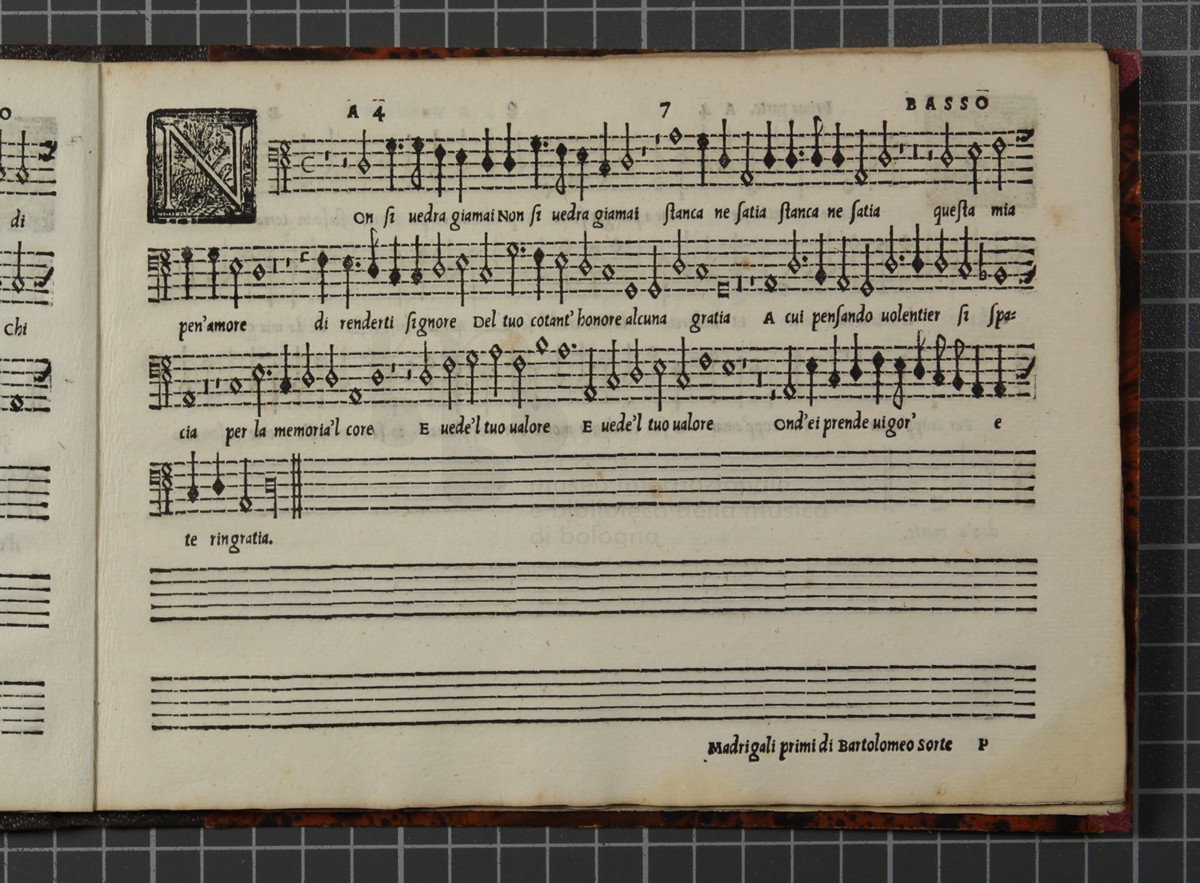 O
di
Chi
A 4 7 BASSO
N On ſi uedra giamai Non ſi uedra giamai ſtanca ne ſatia ſtanca ne ſatia queſta mia
pen'amore di renderti ſignore Del tuo cotant' honore alcuna gratia A cui penſando uolentier ſi ſpa=
cia per la memoria'l core E uede'l tuo ualore E uede'l tuo ualore Ond'ei prende uigor' e
te ringratia.
e biblioteca della musica
di bologna
Madrigali primi di Bartolomeo Sorte P